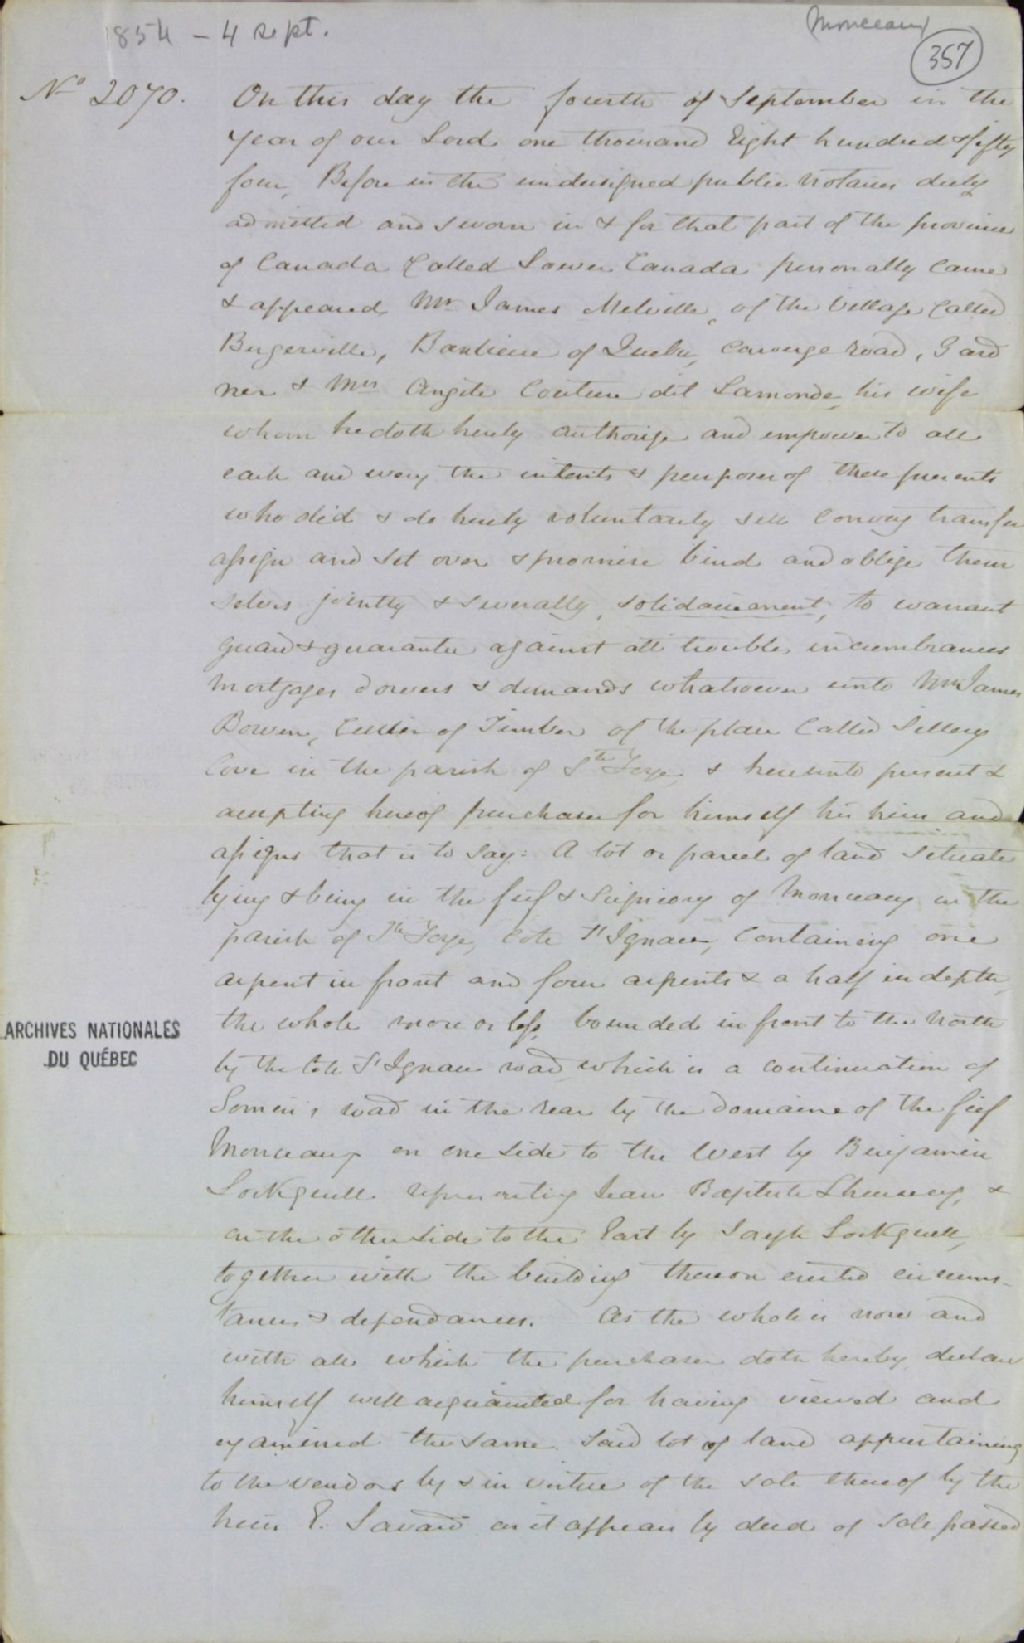 1854 - 4 sept.
Monceaux
357
No 2070. On this day the fourth of September in the
year of our Lord one thousand Eight hundred & fifty
four, Before us the undersigned public notaries duly
admitted and sworn in & for that part of the province
of Canada Called Lower Canada personally Came
& appeared Mr James Melville, of the Village Called
Bergerville, Banlieue of Quebec, Carouge road, Gard
ner & Mrs Angele Couture dit Lamonde his wife
whom he doth hereby authorize and empower to all
each and every the intents & purposes of these presents
who did & do hereby voluntarily sell Convey transfer
assign and set over & promise bind and oblige them
selves jointly & severally, solidairement, to warrant
guard & guarantee against all troubles incumbrances
mortgages dowers & demands whatsoever unto Mr James
Bowen, Culler of Timber of the place Called Sillery
Cove in the parish of Ste Foye, & hereunto present &
accepting hereof purchaser for himself his heirs and
assigns that is to say: A lot or parcel of land situate
lying & being in the fief & Seigniory of Monceaux in the
parish of Ste Foye, Cote St Ignace, Containing one
arpent in front and four arpents & a half in depth,
the whole more or less, bounded in front to the North
by the Cote St Ignace road which is a continuation of
road in the rear by the Domaine of the fief
Monceaux on one side to the West by Benjamin
Lockquell representing Jean Baptiste &
on the other side to the East by Joseph Lockquell,
together with the building thereon erected circums-
tances & dependances. As the whole is now and
with all which the purchaser doth hereby declare
himself well acquainted for having viewed and
examined the same. Said lot of land appertaining
to the vendors by & in virtue of the sale thereof by the
heirs E. Savard as it appears by deed of Sale passed
ARCHIVES NATIONALES
DU QUÉBEC